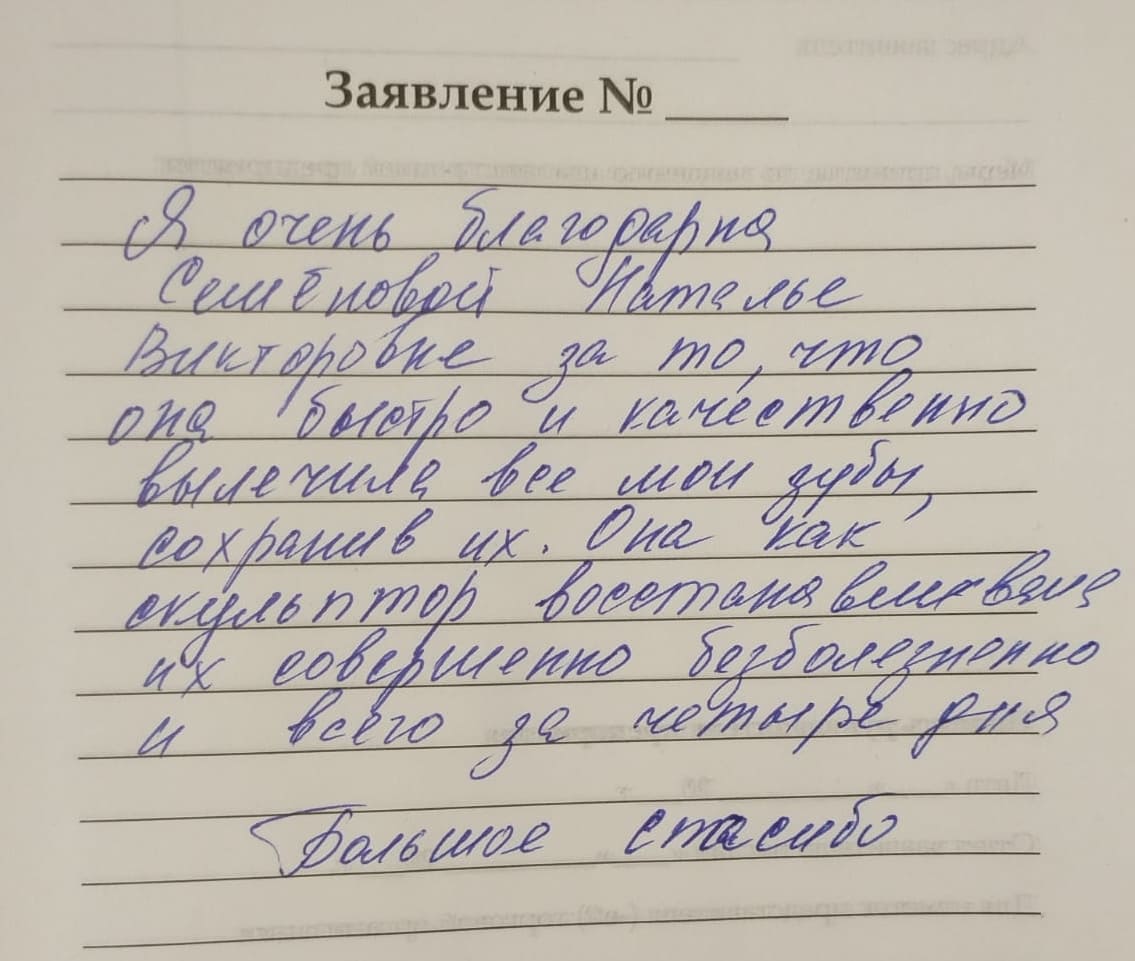 Заявление №
Я очень благодарна
Семёновой Наталье
Викторовне за то, что
она быстро и качественно
вылечила все мои зубы,
сохранив их. Она как
скульптор восстанавливала
их совершенно безболезненно
и всего за четыре дня
Большое спасибо